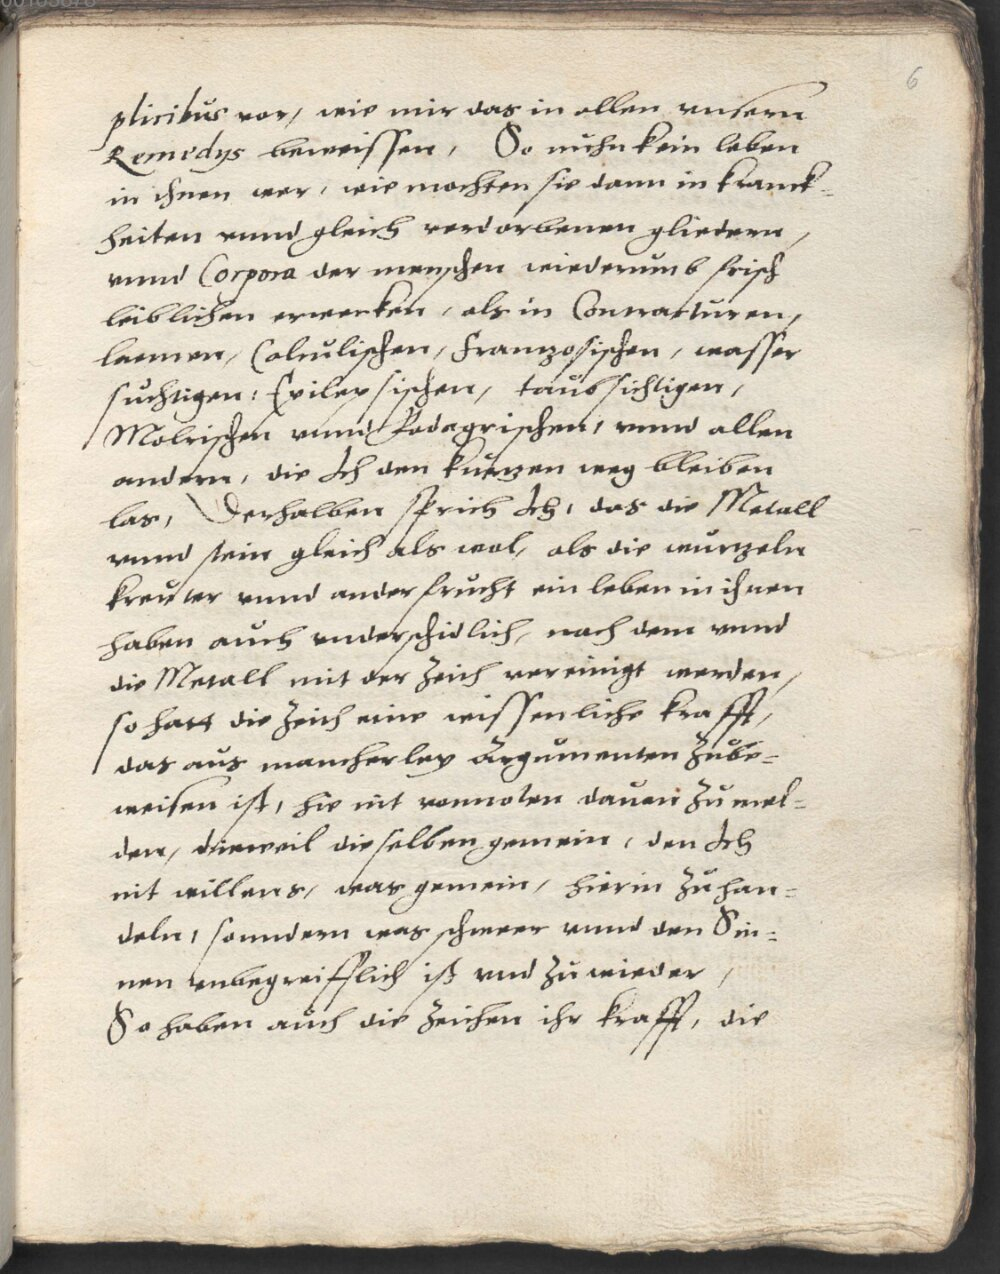 6
plicibus vor, wie mir das in allen unsern
Remedÿs beweissen, So nuhn kein leben
in ihnen wer, wie mochten sie dann in kranck=
heiten vnnd gleich verdorbenen gliedern,
vnnd Corpora der menschen wiederumb frisch
leiblichen erwecken, als in Contracturen,
laemen, Calculischen, Frantzosischen, wasser
suchtigen, Epilepsischen, taubsichtigen,
Molrischen vnnd Podagrischen, vnnd allen
andern, die Ich den kurtzen weg bleiben
las, Derhalben sprich Ich, das die Metall
vnnd stein gleich als wol, als die wurtzeln
kreuter vnnd ander frucht ein leben in ihnen
haben auch vnderschidlich, nach dem vnnd
die Metall mit der Zeich vereinigt werden,
so hatt die Zeich eine wissenliche krafft,
das aus mancherley Argumenten Zube=
weisen ist, hie nit vonnoten dauon Zu mel=
den, dieweil dieselben gemein, den Ich
nit willens, was gemein, hierin Zu han=
deln, sonndern was schweer vnnd den Sin=
nen vnbegreifflich ist vnd Zu wieder,
So haben auch die Zeichen ihr krafft, die